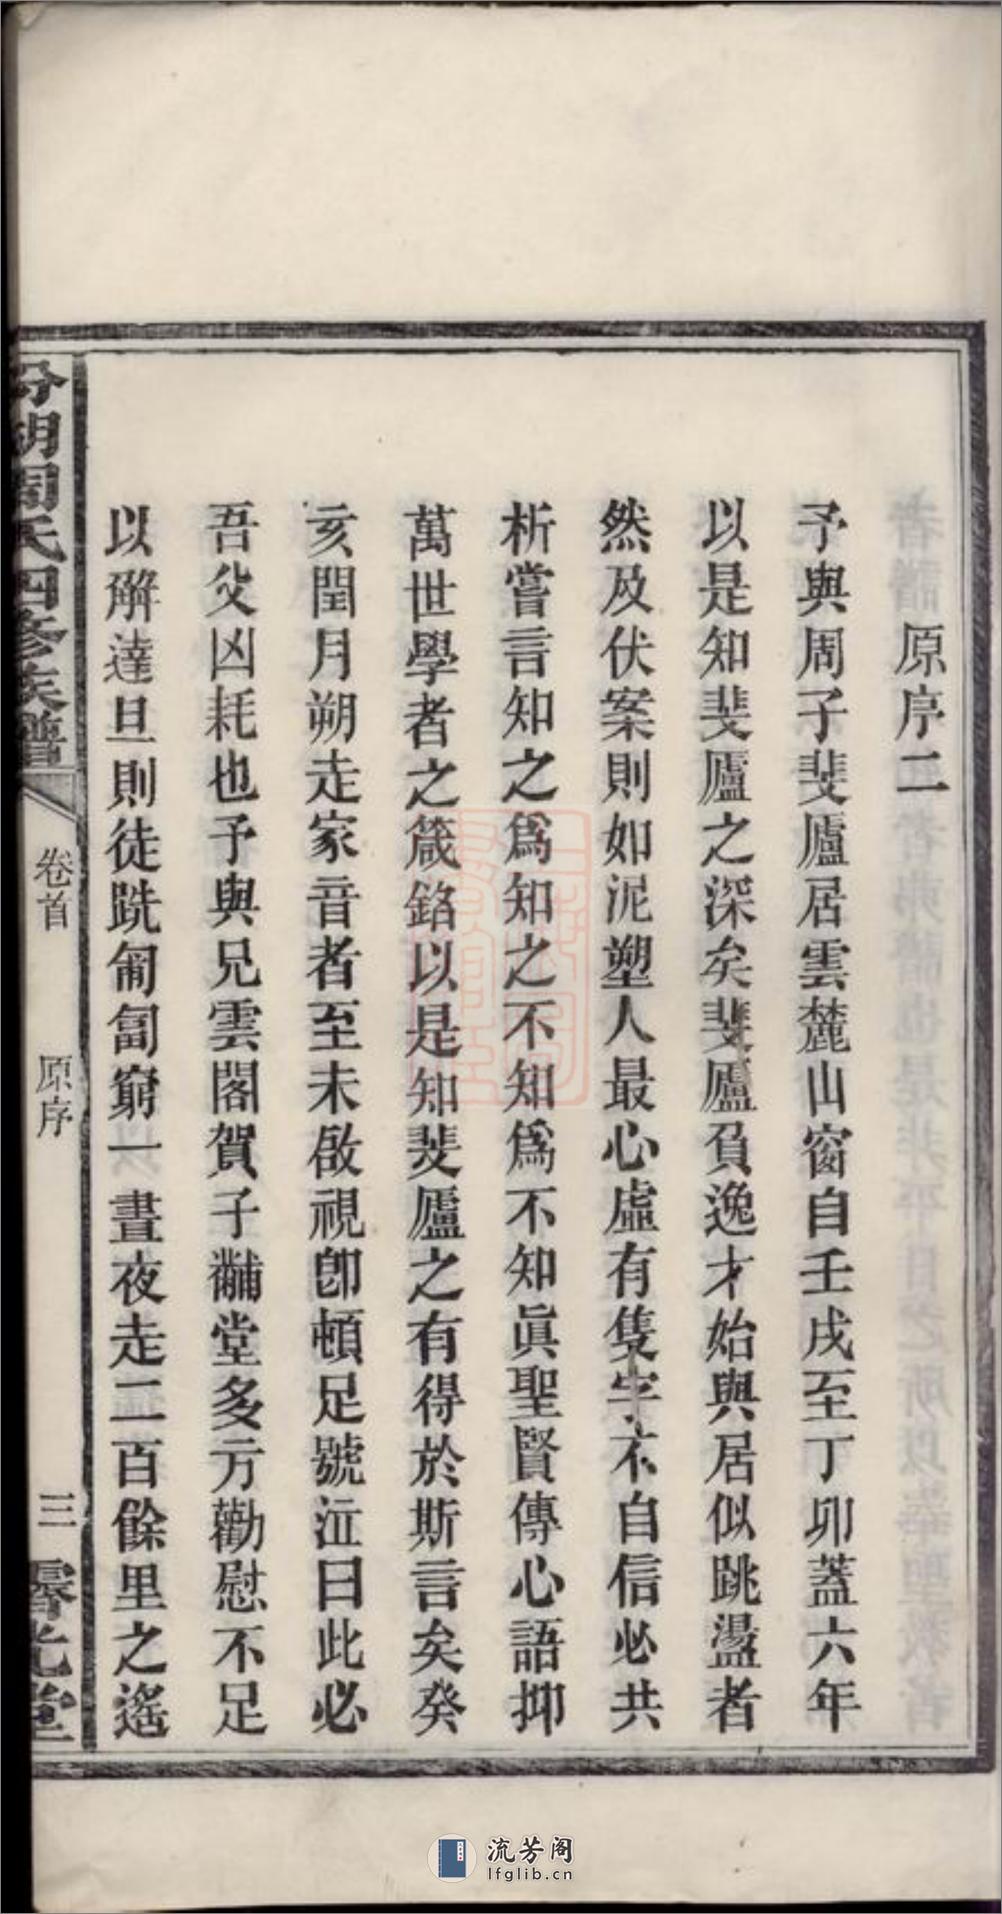 原序二
予與周子斐廬居雲麓山窗自壬戌至丁卯蓋六年
以是知斐廬之深矣斐廬負逸才始與居似跳盪者
然及伏案則如泥塑人最心虛有隻字不自信必共
析嘗言知之爲知之不知爲不知眞聖賢傳心語抑
萬世學者之箴銘以是知斐廬之有得於斯言矣癸
亥閏月朔走家音者至未啟視卽頓足號泣曰此必
吾父凶耗也予與兄雲閣賀子黼堂多方勸慰不足
以觧達旦則徒跣匍匐窮一晝夜走二百餘里之遙
汾湖周氏四修族譜
卷首
原序
三
堂
流芳阁
lfglib.cn